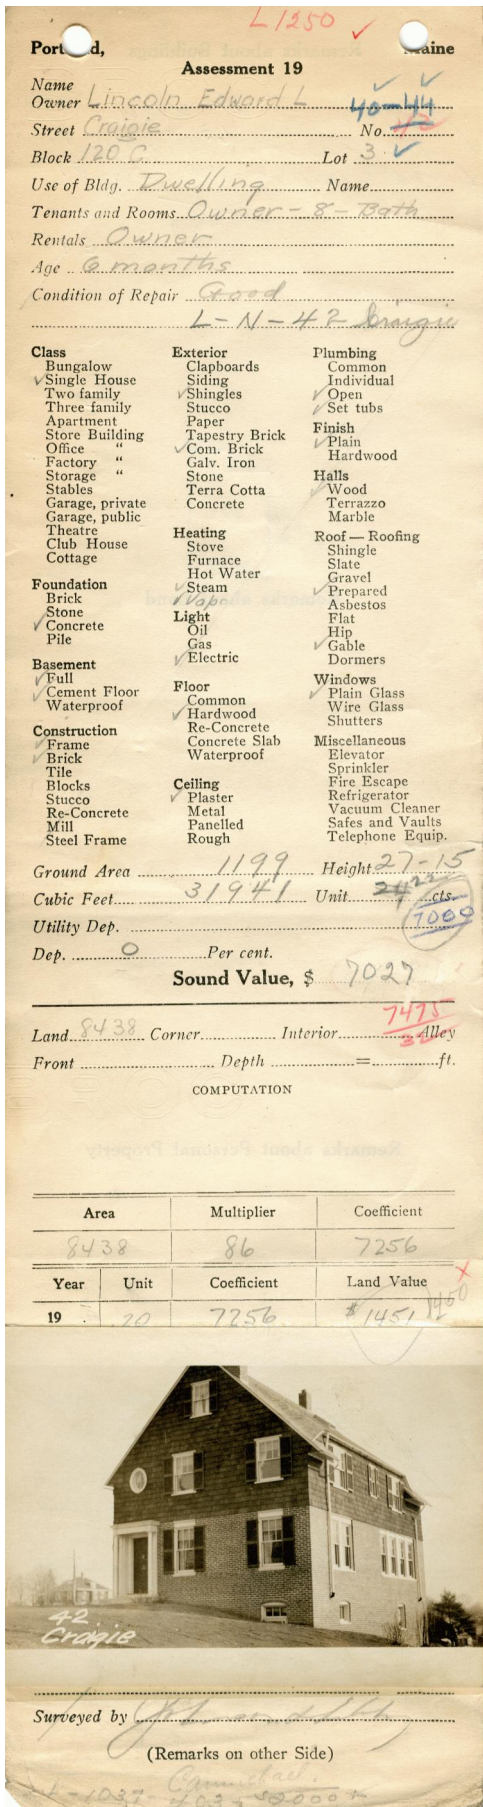 L 1250
Portland, Maine
Assessment 19
Name
Owner Lincoln Edward L 40-44
Street Craigie No. 42
Block 120 C Lot 3
Use of Bldg. Dwelling Name
Tenants and Rooms Owner - 8 - Bath
Rentals Owner
Age 6 months
Condition of Repair Good
L-N-42 Craigie
Class
Bungalow
✓Single House
Two family
Three family
Apartment
Store Building
Office "
Factory "
Storage "
Stables
Garage, private
Garage, public
Theatre
Club House
Cottage
Foundation
Brick
Stone
✓Concrete
Pile
Basement
✓Full
✓Cement Floor
Waterproof
Construction
✓Frame
✓Brick
Tile
Blocks
Stucco
Re-Concrete
Mill
Steel Frame
Exterior
Clapboards
Siding
✓Shingles
Stucco
Paper
Tapestry Brick
✓Com. Brick
Galv. Iron
Stone
Terra Cotta
Concrete
Heating
Stove
Furnace
Hot Water
✓Steam
✓Vapor
Light
Oil
Gas
✓Electric
Floor
Common
✓Hardwood
Re-Concrete
Concrete Slab
Waterproof
Ceiling
✓Plaster
Metal
Panelled
Rough
Plumbing
Common
Individual
✓Open
✓Set tubs
Finish
✓Plain
Hardwood
Halls
✓Wood
Terrazzo
Marble
Roof — Roofing
Shingle
Slate
Gravel
✓Prepared
Asbestos
Flat
Hip
✓Gable
Dormers
Windows
✓Plain Glass
Wire Glass
Shutters
Miscellaneous
Elevator
Sprinkler
Fire Escape
Refrigerator
Vacuum Cleaner
Safes and Vaults
Telephone Equip.
Ground Area 1199 Height 27-15
Cubic Feet 31941 Unit 24 22 cts.
7000
Utility Dep.
Dep. 0 Per cent.
Sound Value, $ 7027
7475
Land 8438 Corner Interior Alley
Front Depth = ft.
COMPUTATION
Area Multiplier Coefficient
8438 86 7256
Year Unit Coefficient Land Value
19 20 7256 $1451 1450
42
Craigie
Surveyed by
(Remarks on other Side)